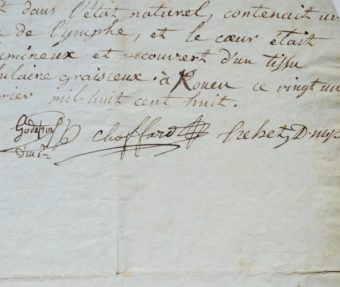 dans l'état naturel, contenait un
de lymphe, et le cœur était
mineux et recouvert d'un tissu
ulaire graisseux à Rouen ce vingt un
rier mil huit cent huit.
Choffard